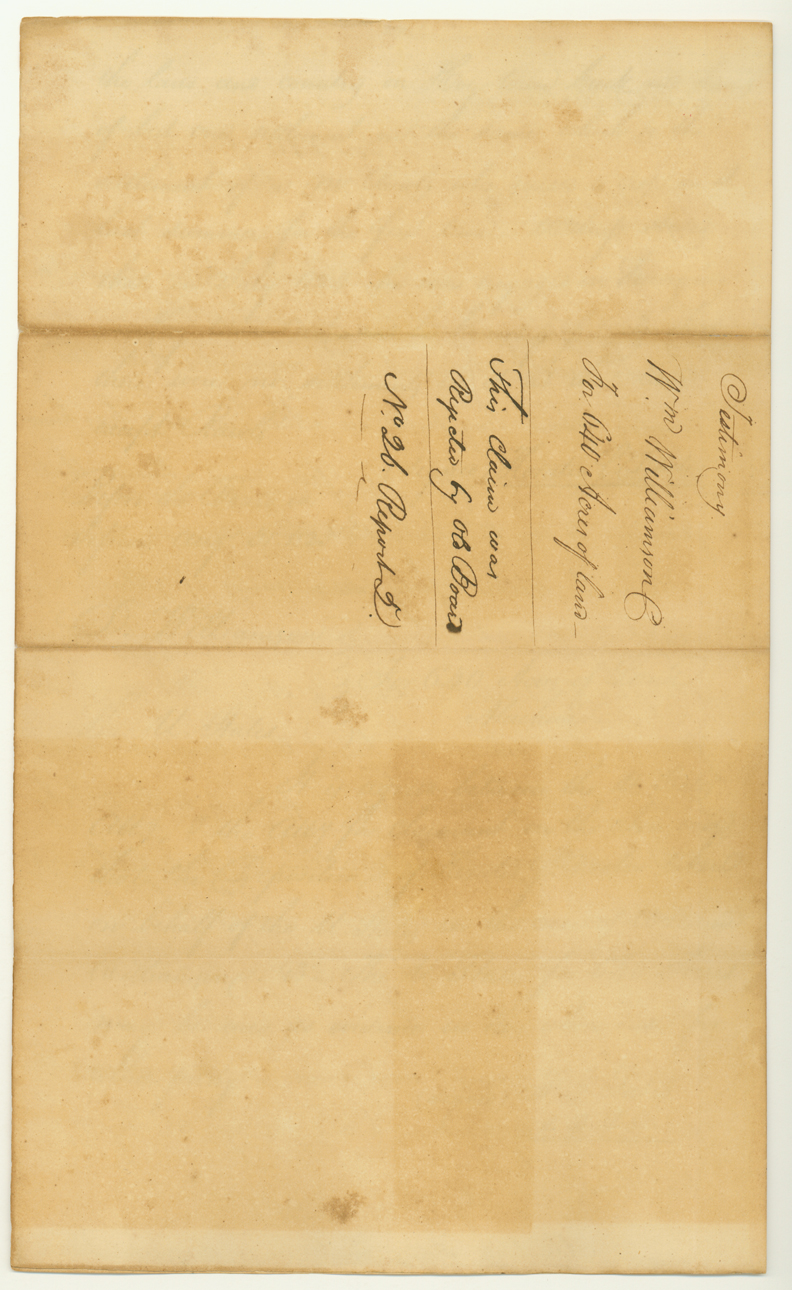 Testimony
Wm Williamson C
For 640 Acres of land
This Claim was
Rejected by OB Board
No. 26. Report D.